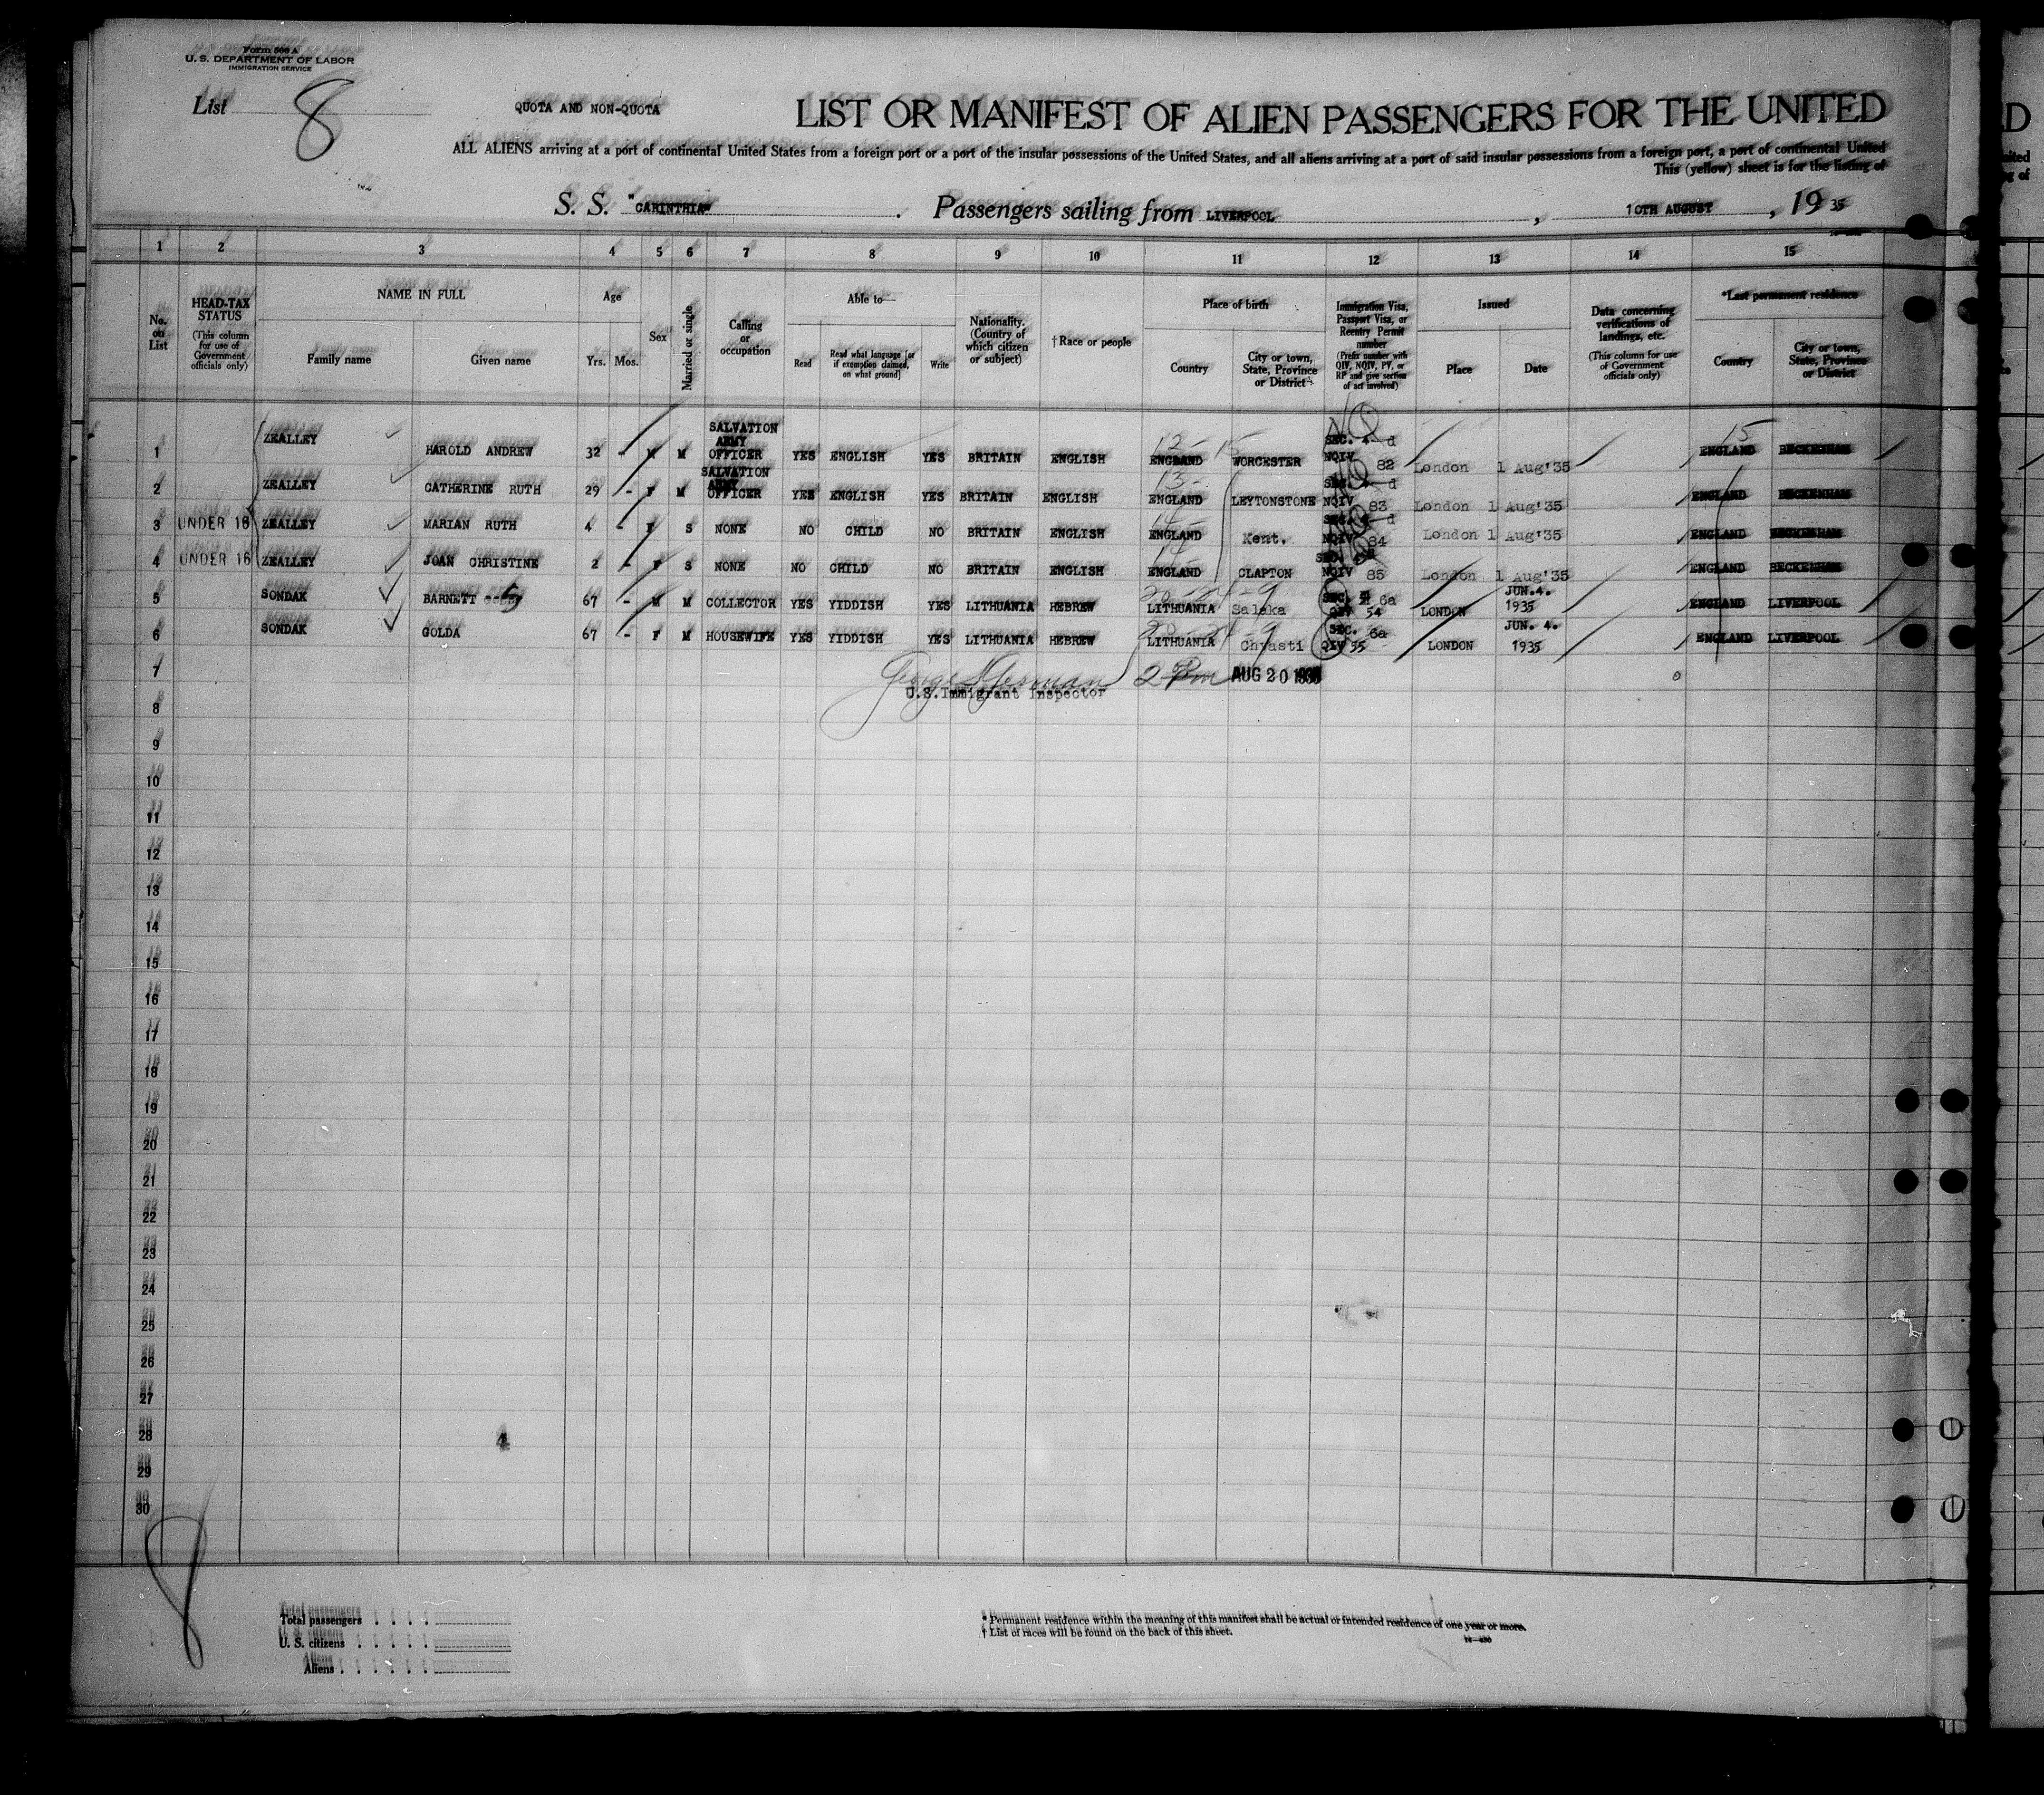 Form 500 A
U. S. DEPARTMENT OF LABOR
IMMIGRATION SERVICE
List 8
QUOTA AND NON-QUOTA
LIST OR MANIFEST OF ALIEN PASSENGERS FOR THE UNITED
ALL ALIENS arriving at a port of continental United States from a foreign port or a port of the insular possessions of the United States, and all aliens arriving at a port of said insular possessions from a foreign port, a port of continental United
This (yellow) sheet is for the listing of
S. S. "CARINTHIA" . Passengers sailing from LIVERPOOL , 10TH AUGUST , 19 35
1 2 3 4 5 6 7 8 9 10 11 12 13 14 15
No. on List
HEAD-TAX STATUS (This column for use of Government officials only)
NAME IN FULL
Family name Given name
Age
Yrs. Mos.
Sex
Married or single
Calling or occupation
Able to—
Read Read what language [or if exemption claimed, on what ground] Write
Nationality. (Country of which citizen or subject)
†Race or people
Place of birth
Country City or town, State, Province or District
Immigration Visa, Passport Visa, or Reentry Permit number (Prefix number with QIV, NQIV, PV, or RP and give section of act involved)
Issued
Place Date
Data concerning verifications of landings, etc. (This column for use of Government officials only)
*Last permanent residence
Country City or town, State, Province or District
1 ZEALLEY HAROLD ANDREW 32 - M M SALVATION ARMY OFFICER YES ENGLISH YES BRITAIN ENGLISH ENGLAND WORCESTER SEC. 4 d NQIV 82 London 1 Aug'35 ENGLAND BECKENHAM
2 ZEALLEY CATHERINE RUTH 29 - F M SALVATION ARMY OFFICER YES ENGLISH YES BRITAIN ENGLISH ENGLAND LEYTONSTONE SEC. 4 d NQIV 83 London 1 Aug'35 ENGLAND BECKENHAM
3 UNDER 16 ZEALLEY MARIAN RUTH 4 - F S NONE NO CHILD NO BRITAIN ENGLISH ENGLAND Kent. SEC. 4 d NQIV 84 London 1 Aug'35 ENGLAND BECKENHAM
4 UNDER 16 ZEALLEY JOAN CHRISTINE 2 - F S NONE NO CHILD NO BRITAIN ENGLISH ENGLAND CLAPTON SEC. 4 d NQIV 85 London 1 Aug'35 ENGLAND BECKENHAM
5 SONDAK BARNETT 67 - M M COLLECTOR YES YIDDISH YES LITHUANIA HEBREW LITHUANIA Salaka SEC. 6a QIV 54 LONDON JUN.4. 1935 ENGLAND LIVERPOOL
6 SONDAK GOLDA 67 - F M HOUSEWIFE YES YIDDISH YES LITHUANIA HEBREW LITHUANIA Chyasti SEC. 6a QIV 55 LONDON JUN. 4. 1935 ENGLAND LIVERPOOL
7 2 Pm AUG 20 1935
U.S.Immigrant Inspector
8
9
10
11
12
13
14
15
16
17
18
19
20
21
22
23
24
25
26
27
28 4
29
30
8
Total passengers
U. S. citizens
Aliens
* Permanent residence within the meaning of this manifest shall be actual or intended residence of one year or more.
† List of races will be found on the back of this sheet.